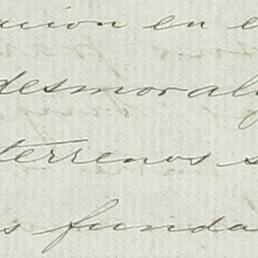 acion en e
desmoral
terrenos s
s funda